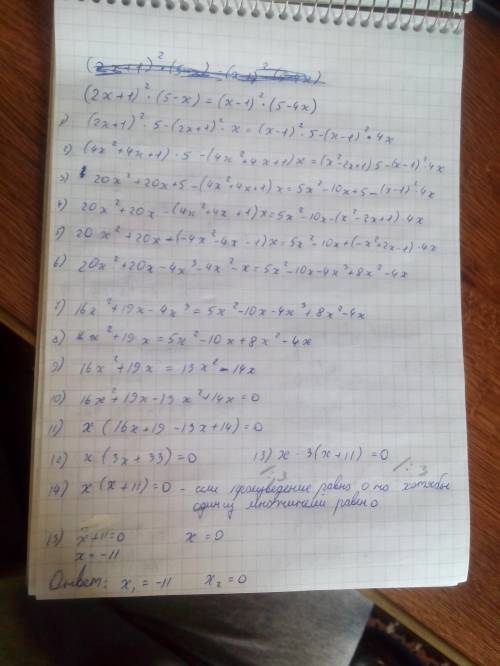 (2x+1)²·(5-x) = (x-1)²·(5-4x)
(2x+1)²·(5-x) = (x-1)²·(5-4x)
1) (2x+1)²·5-(2x+1)²·x = (x-1)²·5-(x-1)²·4x
2) (4x²+4x+1)·5-(4x²+4x+1)x = (x²-2x+1)5-(x-1)²·4x
3) 20x²+20x+5-(4x²+4x+1)x = 5x²-10x+5-(x-1)²·4x
4) 20x²+20x-(4x²+4x+1)x = 5x²-10x-(x²-2x+1)·4x
5) 20x²+20x+(-4x²-4x-1)x = 5x²-10x+(-x²+2x-1)·4x
6) 20x²+20x-4x³-4x²-x = 5x²-10x-4x³+8x²-4x
7) 16x²+19x-4x³ = 5x²-10x-4x³+8x²-4x
8) 16x²+19x = 5x²-10x+8x²-4x
9) 16x²+19x = 13x²-14x
10) 16x²+19x-13x²+14x=0
11) x(16x+19-13x+14)=0
12) x(3x+33)=0 13) x·3(x+11)=0
/:3 /:3
14) x(x+11)=0 - если произведение равно 0 то хотябы
один из множителей равно
15) x+11=0 x=0
x=-11
Ответ: x₁=-11 x₂=0